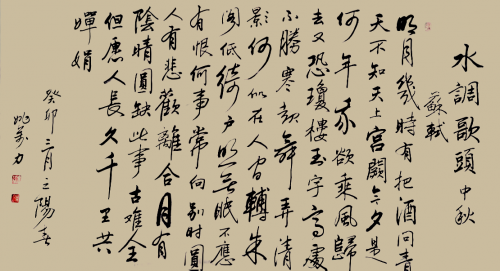 水調歌頭 中秋
蘇軾
明月幾時有把酒問青
天不知天上宮闕今夕是
何年我欲乘風歸
去又恐瓊樓玉宇高處
不勝寒起舞弄清
影何似在人間轉朱
閣低綺戶照無眠不應
有恨何事常向別時圓
人有悲歡離合月有
陰晴圓缺此事古難全
但願人長久千里共
嬋娟
癸卯三月之陽春